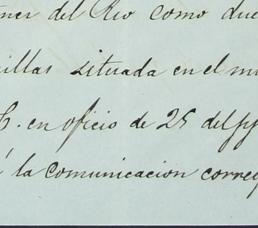 del Rio como
illas situada en el m
en oficio de 25 del pp
la comunicacion corre